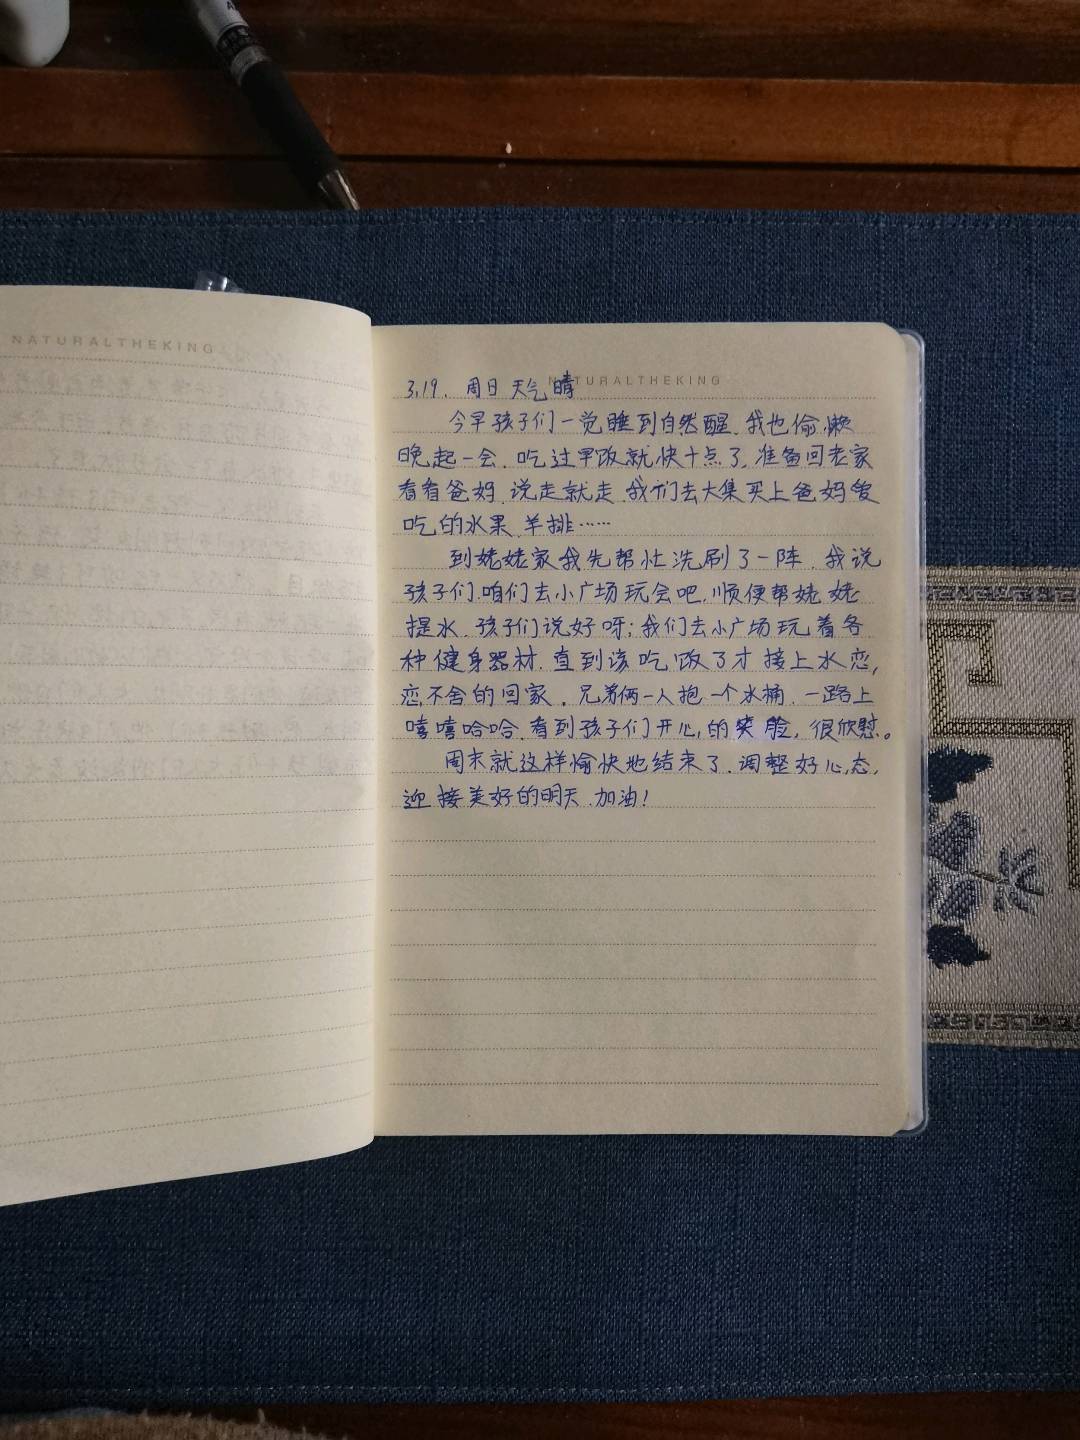 NATURALTHEKING
NATURALTHEKING
3.19. 周日 天气晴
今早孩子们一觉睡到自然醒.我也偷懒
晚起一会.吃过早饭就快十点了,准备回老家
看看爸妈.说走就走.我们去大集买上爸妈爱
吃的水果.羊排……
到姥姥家我先帮忙洗刷了一阵.我说
孩子们.咱们去小广场玩会吧.顺便帮姥姥
提水.孩子们说好呀;我们去小广场玩着各
种健身器材.直到该吃饭了才接上水恋,
恋不舍的回家.兄弟俩一人抱一个水桶.一路上
嘻嘻哈哈.看到孩子们开心的笑脸,很欣慰。
周末就这样愉快地结束了.调整好心态,
迎接美好的明天.加油!